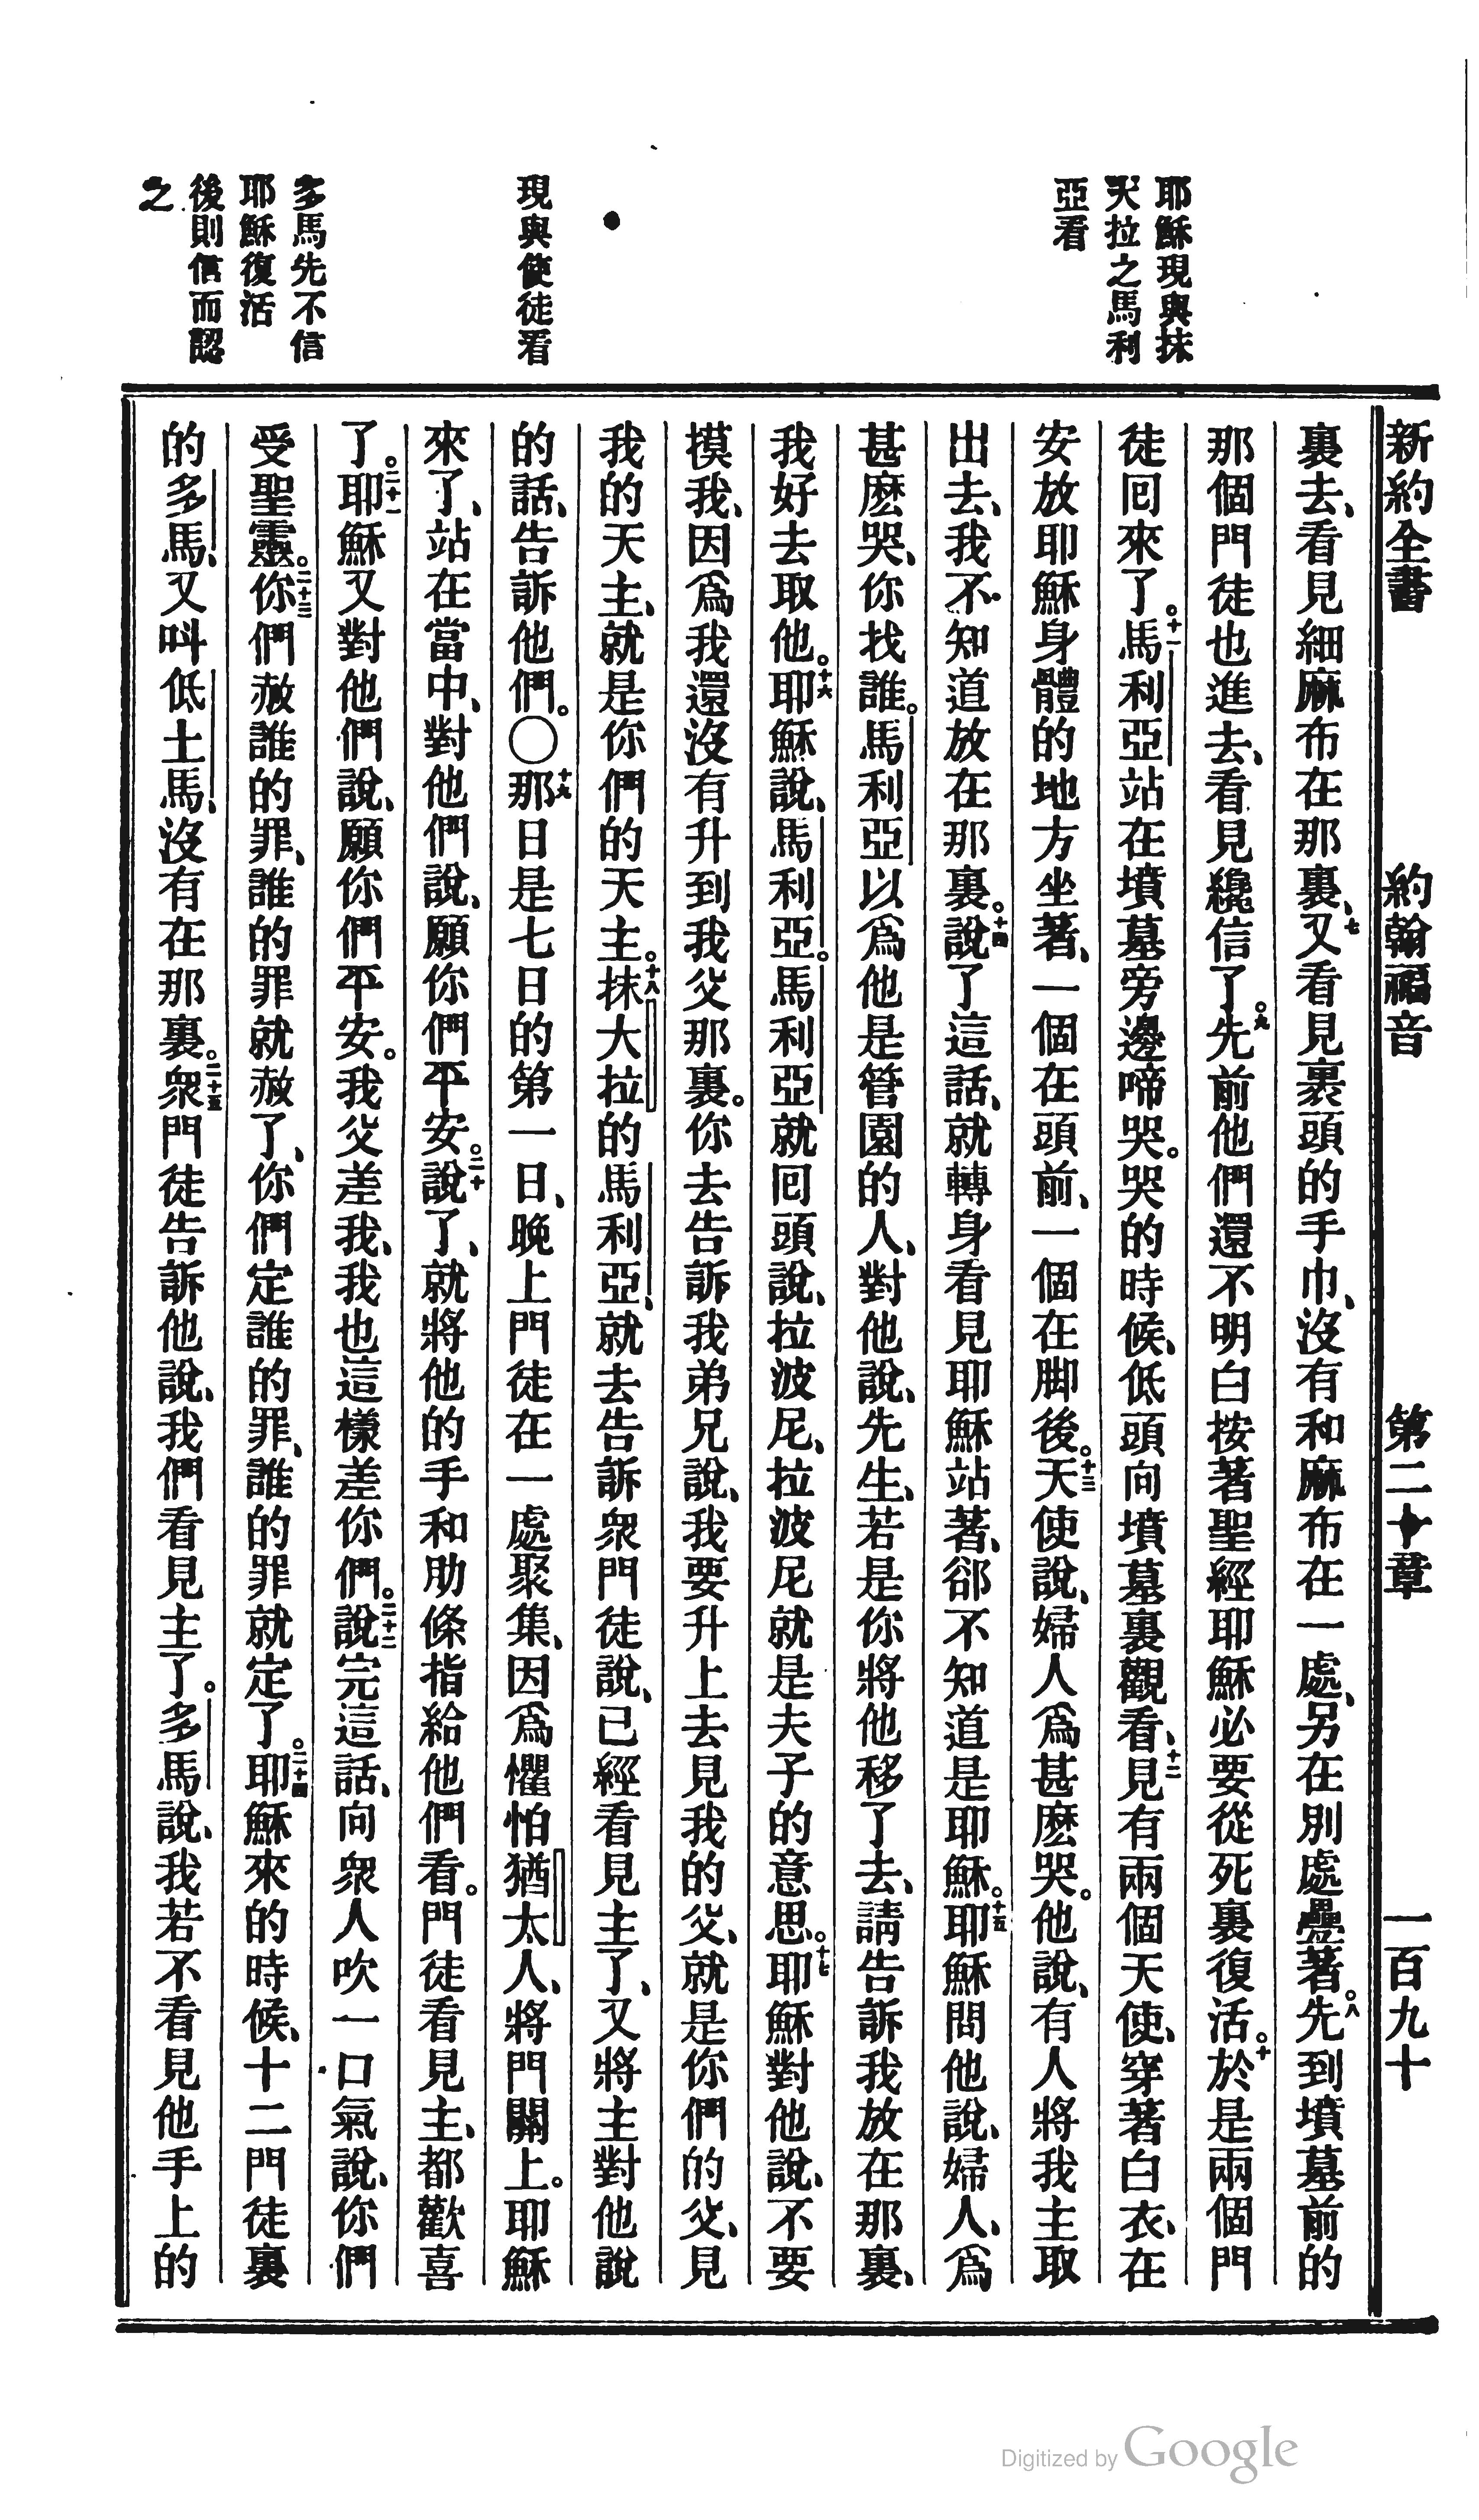 新約全書 約翰福音 第二十章 一百九十
耶穌現與抹
大拉之馬利
亞看
現與使徒看
多馬先不信
耶穌復活
後則信而認
之
裏去、看見細麻布在那裏、七又看見裹頭的手巾、沒有和麻布在一處、另在別處疊著。八先到墳墓前的
那個門徒也進去、看見纔信了。九先前他們還不明白按著聖經耶穌必要從死裏復活。十於是兩個門
徒囘來了。十一馬利亞站在墳墓旁邊啼哭。哭的時候、低頭向墳墓裏觀看、十二見有兩個天使、穿著白衣、在
安放耶穌身體的地方坐著、一個在頭前、一個在脚後。十三天使說、婦人爲甚麽哭。他說、有人將我主取
出去、我不知道放在那裏。十四說了這話、就轉身看見耶穌站著、卻不知道是耶穌。十五耶穌問他說、婦人、爲
甚麽哭、你找誰。馬利亞以爲他是管園的人、對他說、先生、若是你將他移了去、請告訴我放在那裏、
我好去取他。十六耶穌說、馬利亞。馬利亞就囘頭說、拉波尼、拉波尼就是夫子的意思。十七耶穌對他說、不要
摸我、因爲我還沒有升到我父那裏。你去告訴我弟兄說、我要升上去見我的父、就是你們的父、見
我的天主、就是你們的天主。十八抹大拉的馬利亞、就去告訴衆門徒說、已經看見主了、又將主對他說
的話、告訴他們。〇十九那日是七日的第一日、晚上門徒在一處聚集、因爲懼怕猶太人、將門關上。耶穌
來了、站在當中、對他們說、願你們平安。二十說了、就將他的手和肋條指給他們看。門徒看見主、都歡喜
了。二十一耶穌又對他們說、願你們平安。我父差我、我也這樣差你們。二十二說完這話、向衆人吹一口氣說、你們
受聖靈。二十三你們赦誰的罪、誰的罪就赦了、你們定誰的罪、誰的罪就定了。二十四耶穌來的時候、十二門徒裏
的多馬、又呌低土馬、沒有在那裏。二十五衆門徒告訴他說、我們看見主了。多馬說、我若不看見他手上的
Digitized by Google